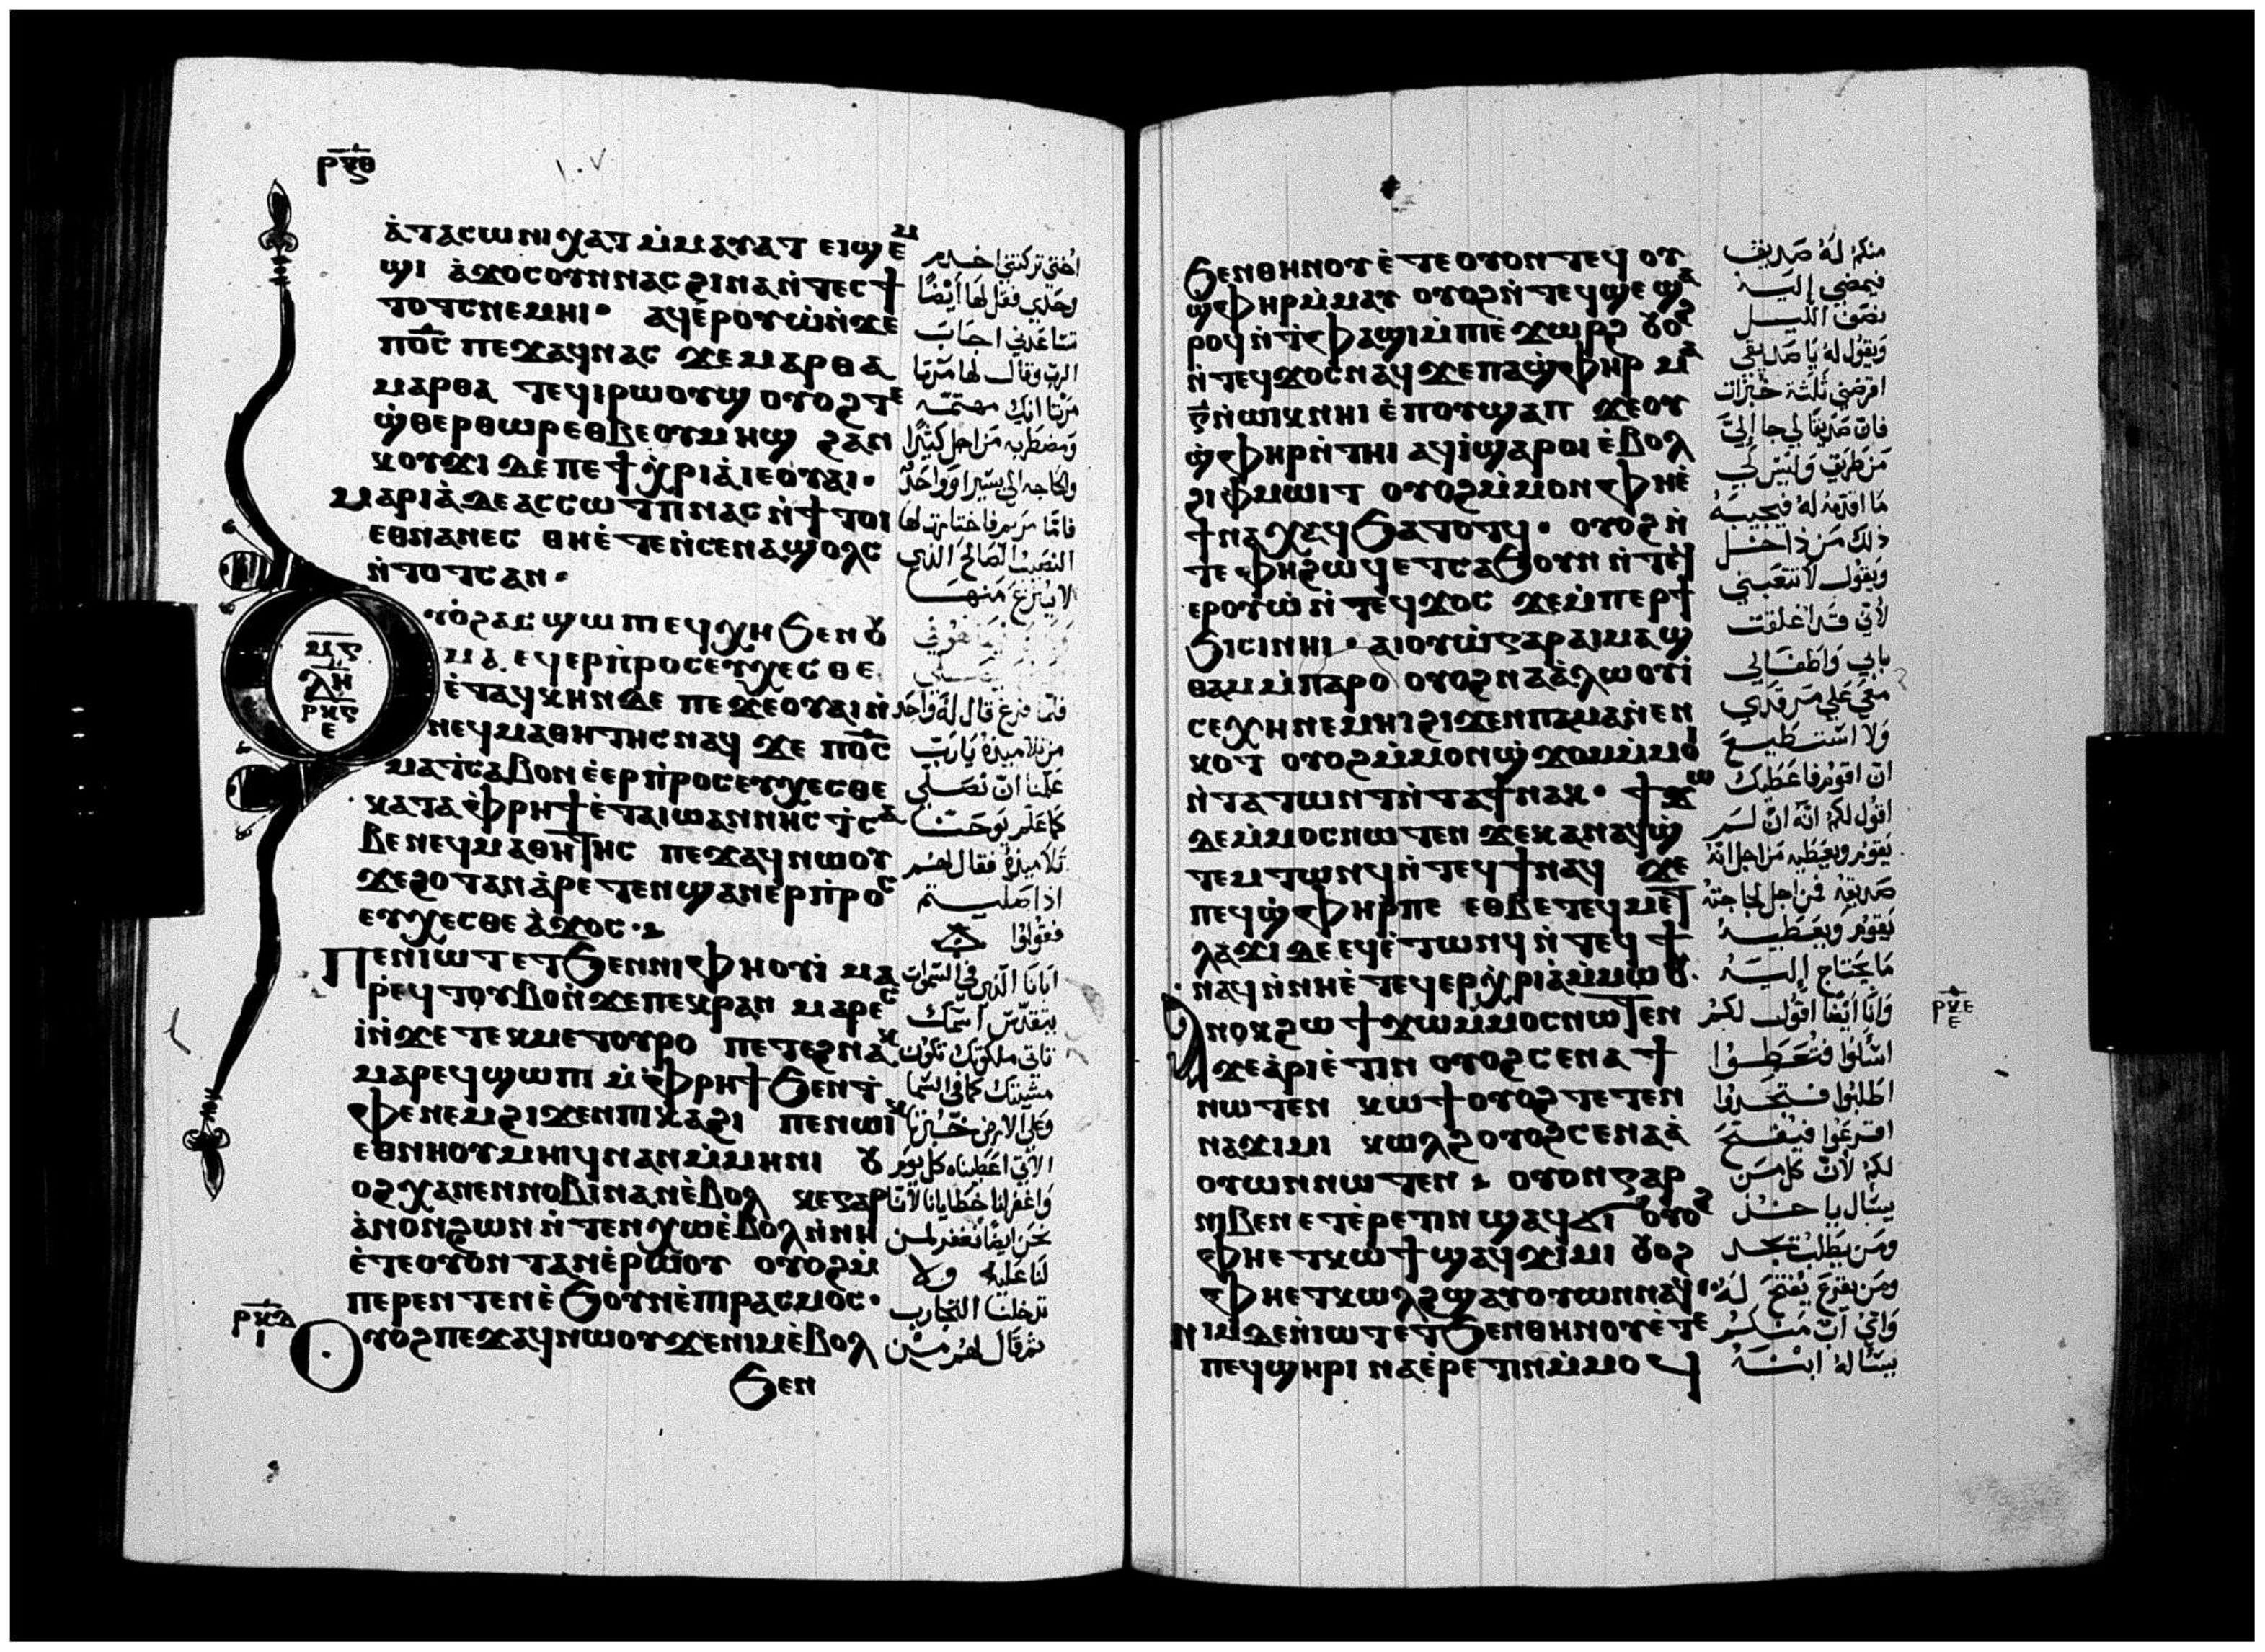 ⲣ̅ⲝ̅ⲑ̅
١٠٧
ⲁ̀ⲧⲁⲥⲱⲛⲓ ⲭⲁⲧ ⲙ̀ⲙⲁⲩⲁⲧ ⲉⲓϣⲉⲙ
ϣⲓ ⲁ̀ϫⲟⲥ ⲟⲩⲛ ⲛⲁⲥ ϩⲓⲛⲁ ⲛ̀ⲧⲉⲥϯ
ⲧⲟⲧⲥ ⲛⲉⲙⲏⲓ · ⲁϥⲉⲣⲟⲩⲱ̀ ⲛ̀ϫⲉ
ⲡⲟ̅ⲥ̅ ⲡⲉϫⲁϥ ⲛⲁⲥ ϫⲉ ⲙⲁⲣⲑⲁ
ⲙⲁⲣⲑⲁ ⲧⲉϥⲓⲣⲱⲟⲩϣ ⲟⲩⲟϩ ⲧⲉ
ϣ̀ⲑⲉⲣⲑⲱⲣ ⲉⲑⲃⲉ ⲟⲩⲙⲏϣ ϩⲁⲛ
ⲕⲟⲩϫⲓ ⲇⲉ ⲡⲉϯⲭ̀ⲣⲓⲁ̀ ⲓⲉ ⲟⲩⲁⲓ ·
ⲙⲁⲣⲓⲁ̀ ⲇⲉ ⲁⲥⲥⲱⲧⲡ ⲛⲁⲥ ⲛ̀ϯⲧⲟⲓ
ⲉⲑⲛⲁⲛⲉⲥ ⲑⲏⲉ̀ⲧⲉⲛ̀ⲥⲉⲛⲁϣⲟⲗⲥ
ⲛ̀ⲧⲟⲧⲥ ⲁⲛ ·
ⲙ̅ⲋ̅
ⲗ̅ⲏ̅
ⲣ̅ⲕ̅ⲋ̅
ⲉ
ⲩⲟϩ ⲁⲥϣⲱⲡⲓ ⲉϥⲭⲏ ϧⲉⲛ ⲟⲩ
ⲙⲁ ⲉϥⲉⲣⲡ̀ⲣⲟⲥⲉⲩⲭⲉⲥⲑⲉ
ⲉ̀ⲧⲁϥⲕⲏⲛ ⲇⲉ ⲡⲉϫⲉ ⲟⲩⲁⲓ ⲛ̀
ⲛⲉϥⲙⲁⲑⲏⲧⲏⲥ ⲛⲁϥ ϫⲉ ⲡⲟ̅ⲥ̅
ⲙⲁⲧ̀ⲥⲁⲃⲟⲛ ⲉ̀ⲉⲣⲡ̀ⲣⲟⲥⲉⲩⲭⲉⲥⲑⲉ
ⲕⲁⲧⲁ ⲫ̀ⲣⲏϯ ⲉ̀ⲧⲁ ⲓⲱⲁⲛⲛⲏⲥ ⲧ̀ⲥⲁ
ⲃⲉ ⲛⲉϥⲙⲁⲑⲏⲧⲏⲥ ⲡⲉϫⲁϥ ⲛⲱⲟⲩ
ϫⲉ ϩⲟⲧⲁⲛ ⲁ̀ⲣⲉⲧⲉⲛϣⲁⲛⲉⲣⲡ̀ⲣⲟⲥ
ⲉⲩⲭⲉⲥⲑⲉ ⲁ̀ϫⲟⲥ ·
ⲡⲉⲛⲓⲱⲧ ⲉⲧϧⲉⲛ ⲛⲓⲫⲏⲟⲩⲓ̀ ⲙⲁ
ⲣⲉϥⲧⲟⲩⲃⲟ ⲛ̀ϫⲉ ⲡⲉⲕⲣⲁⲛ ⲙⲁⲣⲉⲥ
ⲓ̀ ⲛ̀ϫⲉ ⲧⲉⲕⲙⲉⲧⲟⲩⲣⲟ ⲡⲉⲧⲉϩⲛⲁⲕ
ⲙⲁⲣⲉϥϣⲱⲡⲓ ⲙ̀ⲫ̀ⲣⲏϯ ϧⲉⲛ ⲧ̀
ⲫⲉ ⲛⲉⲙ ϩⲓϫⲉⲛ ⲡⲓⲕⲁϩⲓ ⲡⲉⲛⲱⲓⲕ
ⲉⲑⲛⲏⲟⲩ ⲙⲏⲓϥ ⲛⲁⲛ ⲙ̀ⲙⲏⲛⲓ ⲟⲩ
ⲟϩ ⲭⲁ ⲛⲉⲛⲛⲟⲃⲓ ⲛⲁⲛ ⲉ̀ⲃⲟⲗ ⲕⲉ ⲅⲁⲣ
ⲁ̀ⲛⲟⲛ ϩⲱⲛ ⲛ̀ⲧⲉⲛⲭⲱ ⲉ̀ⲃⲟⲗ ⲛ̀ⲛⲏ
ⲉ̀ⲧⲉ ⲟⲩⲟⲛ ⲧⲁⲛ ⲉ̀ⲣⲱⲟⲩ ⲟⲩⲟϩ ⲙ̀
ⲡⲉⲣⲉⲛⲧⲉⲛ ⲉ̀ϧⲟⲩⲛ ⲉ̀ⲡⲓⲣⲁⲥⲙⲟⲥ ·
ⲣ̅ⲕ̅ⲇ̅
ⲓ
ⲟⲩⲟϩ ⲡⲉϫⲁϥ ⲛⲱⲟⲩ ϫⲉ ⲛⲓⲙ ⲉ̀ⲃⲟⲗ
ϧⲉⲛ
اختي تركتني اخدم
وحدي فقل لها أيضًا
تساعدني اجاب
الرب وقال لها مرتا
مرتا انك مهتمة
ومضطربه من اجل كثيرًا
والحاجه الي يسيرا وواحد
فامّا مريم فاختارت لها
النصيب الصالح الذي
لا ينزع منها
فلمّا فرغ قال له واحد
من تلاميذه يا رب
علّمنا انّ نصلّي
كما علّم يوحنّا
تلاميذه فقال لهم
اذا صليتم
فقولوا
ابانا الّذي في السموات
يتقدّس اسمك
تاتي ملكوتك تكون
مشيتك كما في السما
وعلي الارض خبزنا
الاتي اعطيناه كل يوم
واغفر لنا خطايانا لانّا
نحن ايضا نغفر لمن
لنا عليه ولا
تدخلنا التجارب
ثم قال لهم من
ϧⲉⲛ ⲑⲏⲛⲟⲩ ⲉ̀ⲧⲉ ⲟⲩⲟⲛⲧⲉϥ ⲟⲩ
ϣ̀ⲫⲏⲣ ⲙ̀ⲙⲁⲩ ⲟⲩⲟϩ ⲛ̀ⲧⲉϥϣⲉ ϣⲁ
ⲣⲟϥ ⲛ̀ⲧ̀ⲫⲁϣⲓ ⲙ̀ⲡⲓⲉ̀ϫⲱⲣϩ ⲟⲩⲟϩ
ⲛ̀ⲧⲉϥϫⲟⲥ ⲛⲁϥ ϫⲉ ⲡⲁϣ̀ⲫⲏⲣ ⲙⲁ
ⲅ̅ ⲛ̀ⲱⲓⲕ ⲛⲏⲓ ⲉ̀ⲡⲟⲩϣⲁⲡ ϫⲉ ⲟⲩ
ϣ̀ⲫⲏⲣ ⲛ̀ⲧⲏⲓ ⲁϥⲓ̀ ϣⲁⲣⲟⲓ ⲉ̀ⲃⲟⲗ
ϩⲓ ⲫ̀ⲙⲱⲓⲧ ⲟⲩⲟϩ ⲙ̀ⲙⲟⲛ ⲫⲏⲉ̀
ϯⲛⲁⲭⲁϥ ϧⲁⲧⲟⲧϥ · ⲟⲩⲟϩ ⲛ̀
ⲧⲉ ⲫⲏ ϩⲱϥ ⲉⲧⲥⲁϧⲟⲩⲛ ⲛ̀ⲧⲉϥ
ⲉⲣⲟⲩⲱ̀ ⲛ̀ⲧⲉϥϫⲟⲥ ϫⲉ ⲙ̀ⲡⲉⲣϯ
ϧⲓⲥⲓ ⲛⲏⲓ · ⲁⲓⲟⲩⲱ̀ ⲅⲁⲣ ⲁⲓⲙⲁϣ
ⲑⲁⲙ ⲙ̀ⲡⲁⲣⲟ ⲟⲩⲟϩ ⲛⲁⲁ̀ⲗⲱⲟⲩⲓ̀
ⲥⲉⲭⲏ ⲛⲉⲙⲏⲓ ϩⲓϫⲉⲛ ⲡⲁⲙⲁⲛ̀ⲉⲛ
ⲕⲟⲧ ⲟⲩⲟϩ ⲙ̀ⲙⲟⲛ ϣ̀ϫⲟⲙ ⲙ̀ⲙⲟⲓ
ⲛ̀ⲧⲁⲧⲱⲛⲧ ⲛ̀ⲧⲁϯ ⲛⲁⲕ · ϯϫⲱ
ⲇⲉ ⲙ̀ⲙⲟⲥ ⲛⲱⲧⲉⲛ ϫⲉ ⲕⲁⲛ ⲁϥϣ̀
ⲧⲉⲙⲧⲱⲛϥ ⲛ̀ⲧⲉϥϯ ⲛⲁϥ ϫⲉ
ⲡⲉϥϣ̀ⲫⲏⲣ ⲡⲉ ⲉⲑⲃⲉ ⲧⲉϥⲙⲉⲧ
ⲗⲁϫⲓ ⲇⲉ ⲉϥⲉ̀ⲧⲱⲛϥ ⲛ̀ⲧⲉϥϯ
ⲛⲁϥ ⲛ̀ⲛⲏⲉ̀ⲧⲉϥⲉⲣⲭ̀ⲣⲓⲁ̀ ⲙ̀ⲙⲱⲟⲩ.
ⲁⲛⲟⲕ ϩⲱ ϯϫⲱ ⲙ̀ⲙⲟⲥ ⲛⲱⲧⲉⲛ
ϫⲉ ⲁ̀ⲣⲓⲉ̀ⲧⲓⲛ ⲟⲩⲟϩ ⲥⲉⲛⲁϯ
ⲛⲱⲧⲉⲛ ⲕⲱϯ ⲟⲩⲟϩ ⲧⲉⲧⲉⲛ
ⲛⲁϫⲓⲙⲓ ⲕⲱⲗϩ ⲟⲩⲟϩ ⲥⲉⲛⲁⲁ̀
ⲟⲩⲱⲛ ⲛⲱⲧⲉⲛ · ⲟⲩⲟⲛ ⲅⲁⲣ
ⲛⲓⲃⲉⲛ ⲉⲧⲉ̀ⲣⲉⲧⲓⲛ ϣⲁϥϭⲓ ⲟⲩⲟϩ
ⲫⲏⲉⲧⲕⲱϯ ϣⲁϥϫⲓⲙⲓ ⲟⲩⲟϩ
ⲫⲏⲉⲧⲕⲱⲗϩ ϣⲁⲩⲟⲩⲱⲛ ⲛⲁϥ
ⲛⲓⲙ ⲇⲉ ⲛ̀ⲓⲱⲧ ⲉⲧϧⲉⲛ ⲑⲏⲛⲟⲩ ⲉ̀ⲧⲉ
ⲡⲉϥϣⲏⲣⲓ ⲛⲁⲉ̀ⲣⲉⲧⲓⲛ ⲙ̀ⲙⲟϥ
منكم له صديق
فيمضي إليه
نصف الليل
ويقول له يا صديقي
اقرضني ثلثة خبزات
فان صديقًا لي جا إليّ
من طريق وليس لي
ما اقدمه له فيجيبه
ذلك من داخل
ويقول لا تتعبني
لأني قد اغلقت
بابي واطفالي
معي علي مرقدي
ولا استطيع
ان اقوم فاعطيك
اقول لكم انّه انّ لم
يقوم ويعطيه من اجل انه
صديقه فمن اجل لجاجته
يقوم ويعطيه
ما يحتاج إليه
وانا أيضا اقول لكم
اسألوا فتعطوا
اطلبوا فتجدوا
اقرعوا فيفتح
لكم لأنّ كل من
يسال ياخذ
ومن يطلب يجد
ومن يقرع يفتح له
وايّ اب منكم
يسأله ابنه
ⲣ̅ⲕ̅ⲉ̅
ⲉ